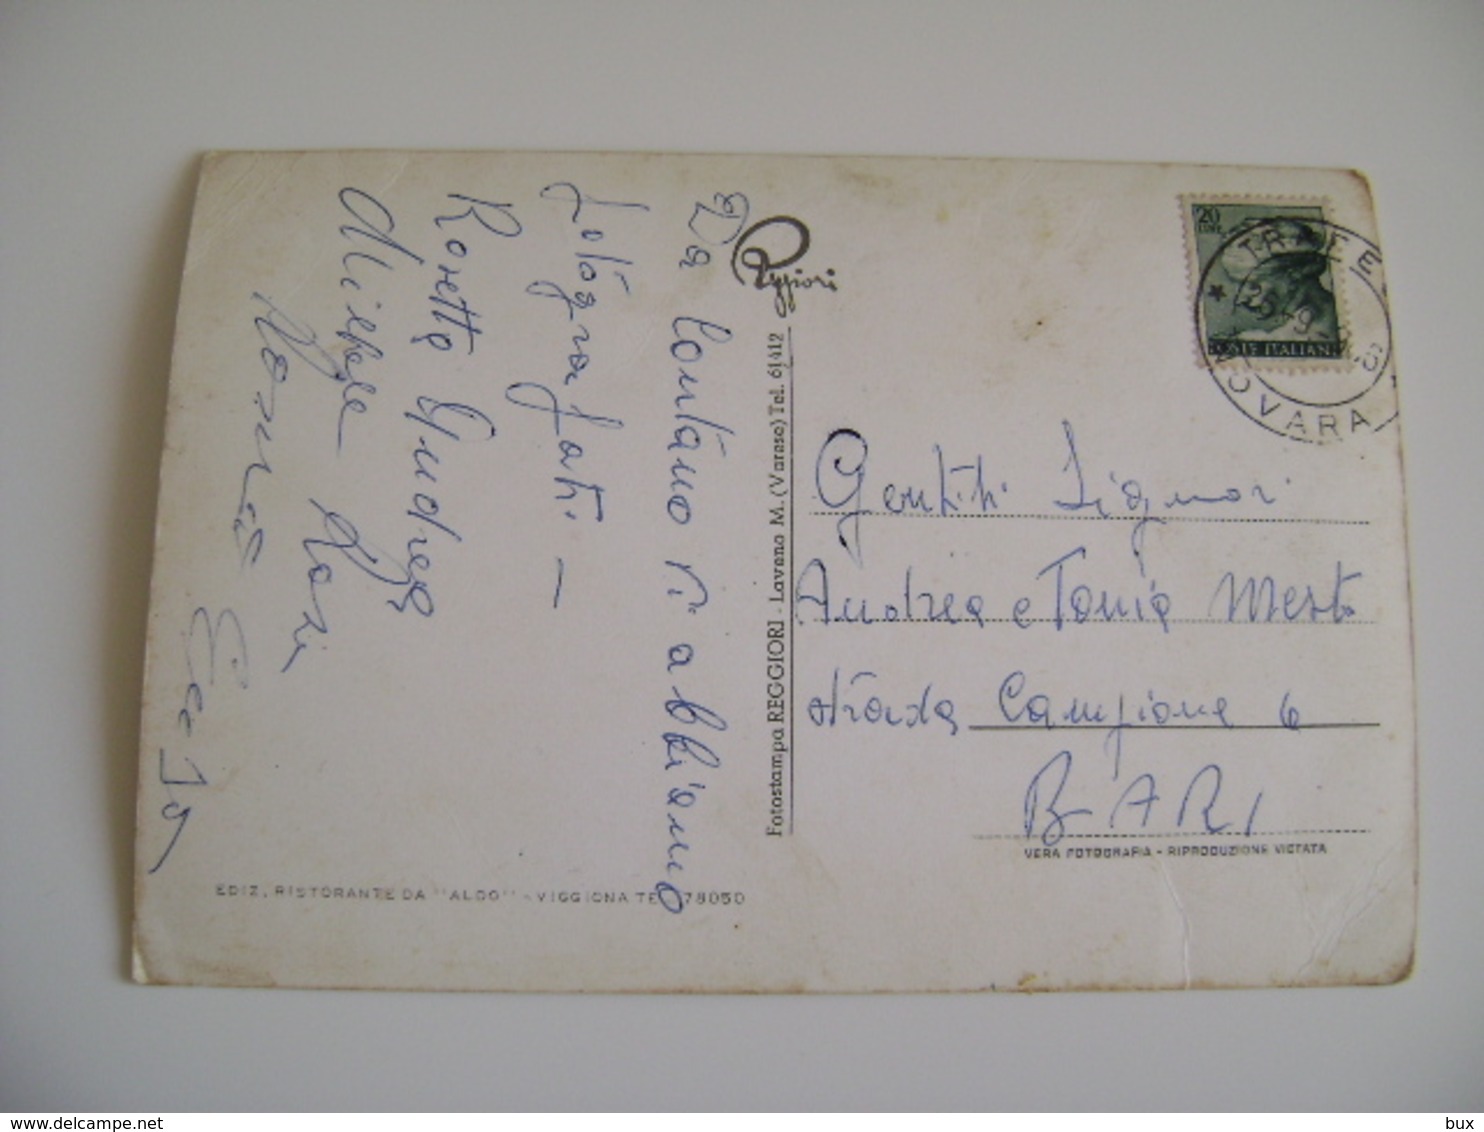 Da lontano vi abbiamo
fotografati -
Roretta Andrea
Michele Rosi
Reggiori
Fotostampa REGGIORI - Laveno M. (Varese) Tel. 61412
20
LIRE
POSTE ITALIANE
NOVARA
Gentili Signori
Andrea e Tonia Mesto
strada Campione 6
BARI
VERA FOTOGRAFIA - RIPRODUZIONE VIETATA
EDIZ. RISTORANTE DA "ALDO" - VIGGIONA TEL 78050
bux